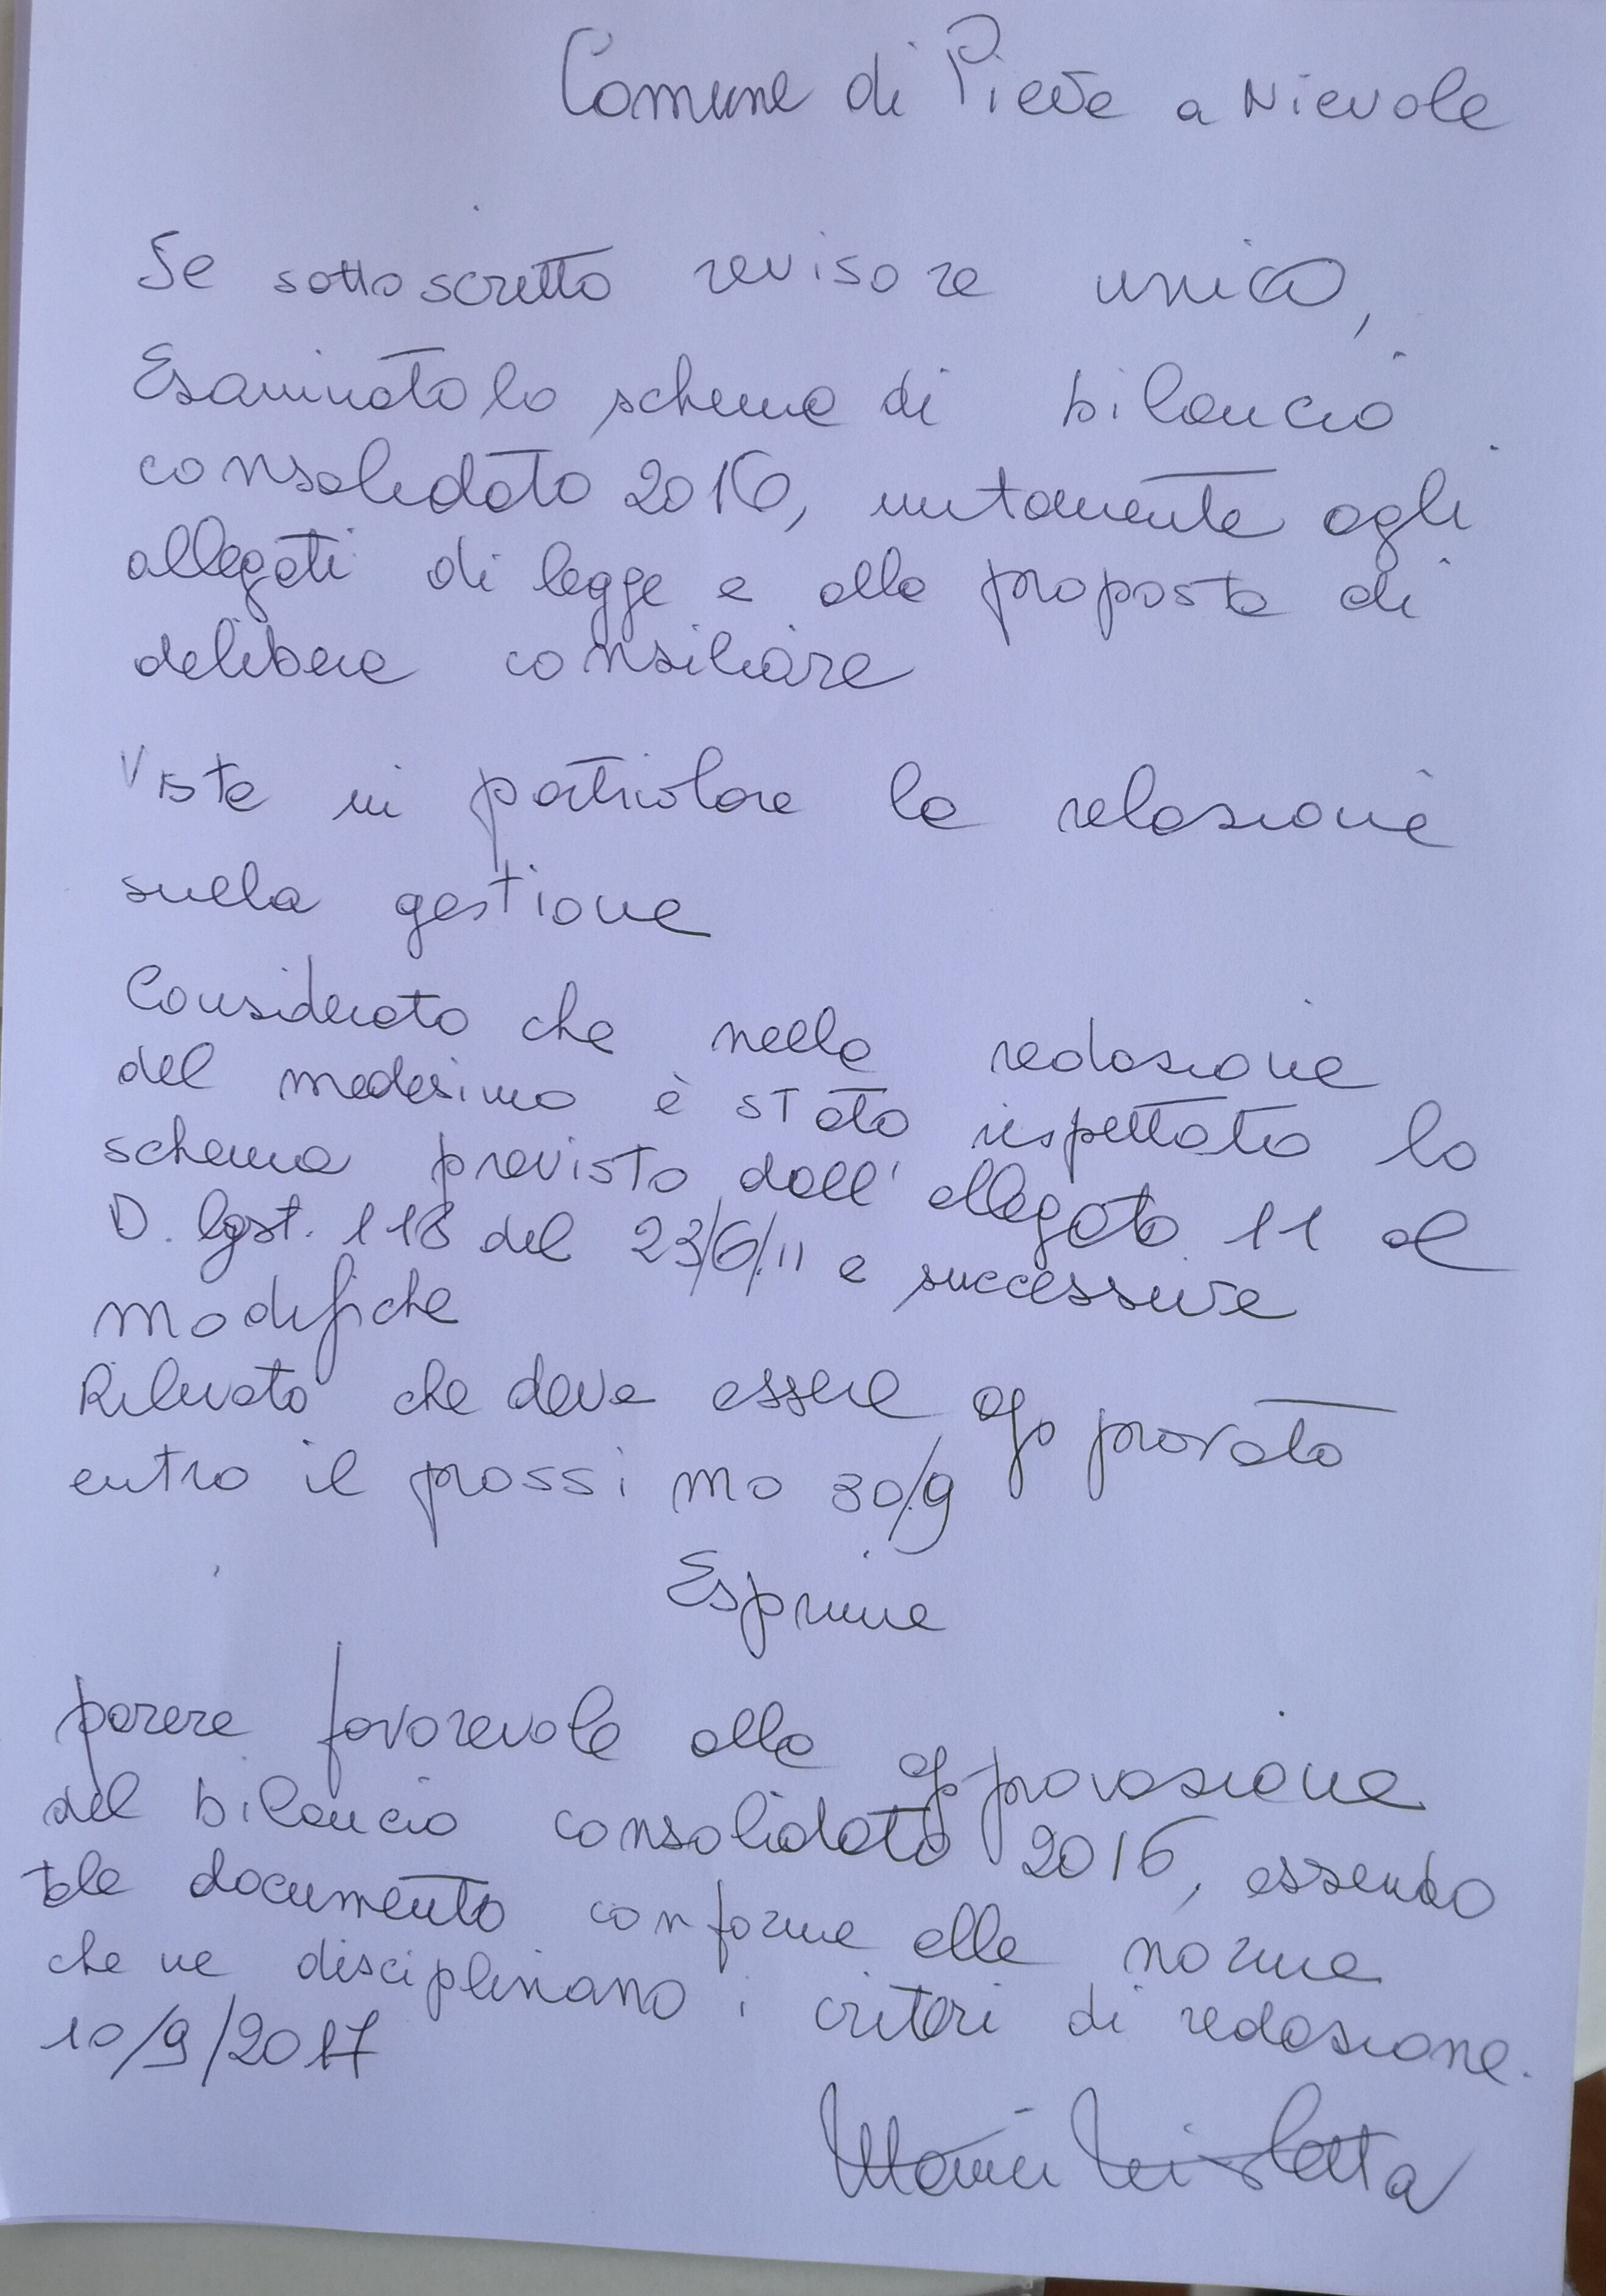 Comune di Pieve a Nievole
Se sottoscritto revisore unico,
Esaminato lo schema di bilancio
consolidato 2016, unitamente agli
allegati di legge e alla proposta di
delibera consiliare
Vista in particolare la relazione
sulla gestione
Considerato che nella redazione
del medesimo è stato rispettato lo
schema previsto dall'allegato 11 al
D. lgst. 118 del 23/6/11 e successive
modifiche
Rilevato che deve essere approvato
entro il prossimo 30/9
Esprime
parere favorevole alla approvazione
del bilancio consolidato 2016, essendo
tale documento conforme alle norme
che ne disciplinano i criteri di redazione.
10/9/2017